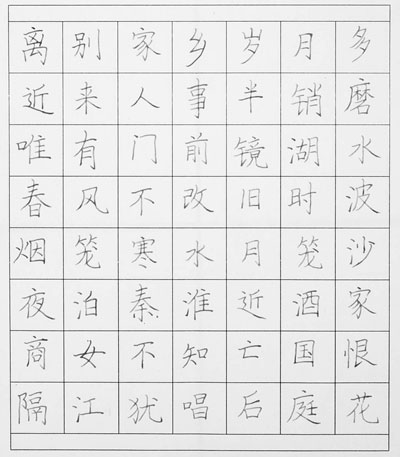 离别家乡岁月多
近来人事半销磨
唯有门前镜湖水
春风不改旧时波
烟笼寒水月笼沙
夜泊秦淮近酒家
商女不知亡国恨
隔江犹唱后庭花